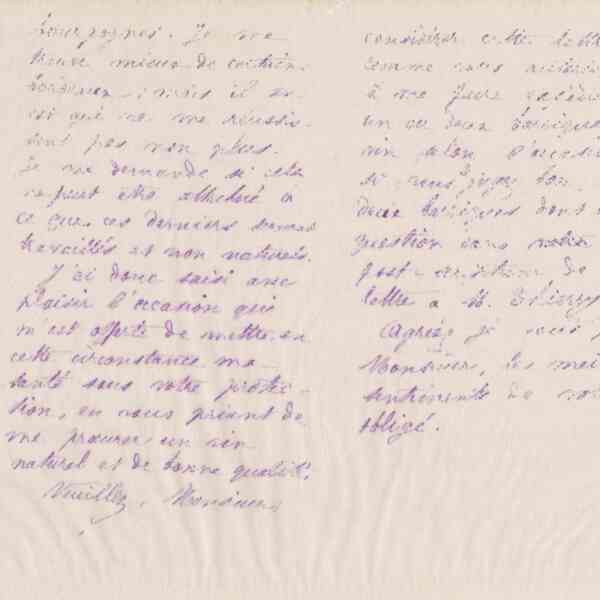 bourgognes. Je me
trouve mieux de certains
bordeaux ; mais il en
est qui ne me réussis-
sent pas non plus.
Je me demande si cela
ne peut être attribué à
ce que ces derniers seraient
travaillés et non naturels.
J'ai donc saisi avec
plaisir l'occasion qui
m'est offerte de mettre en
cette circonstance ma
santé sous votre protec-
tion, en vous priant de
me procurer un vin
naturel et de bonne qualité.
Veuillez, Monsieur,
considérer cette lettre
comme vous
à me faire
un ou deux barriques
vin selon l'occasion
si vous jugez bon
deux barriques dont
question dans votre
post-scriptum de
lettre à M. Thierry
Agréez je vous
Monsieur, les mei
sentiments de vo
obligé.